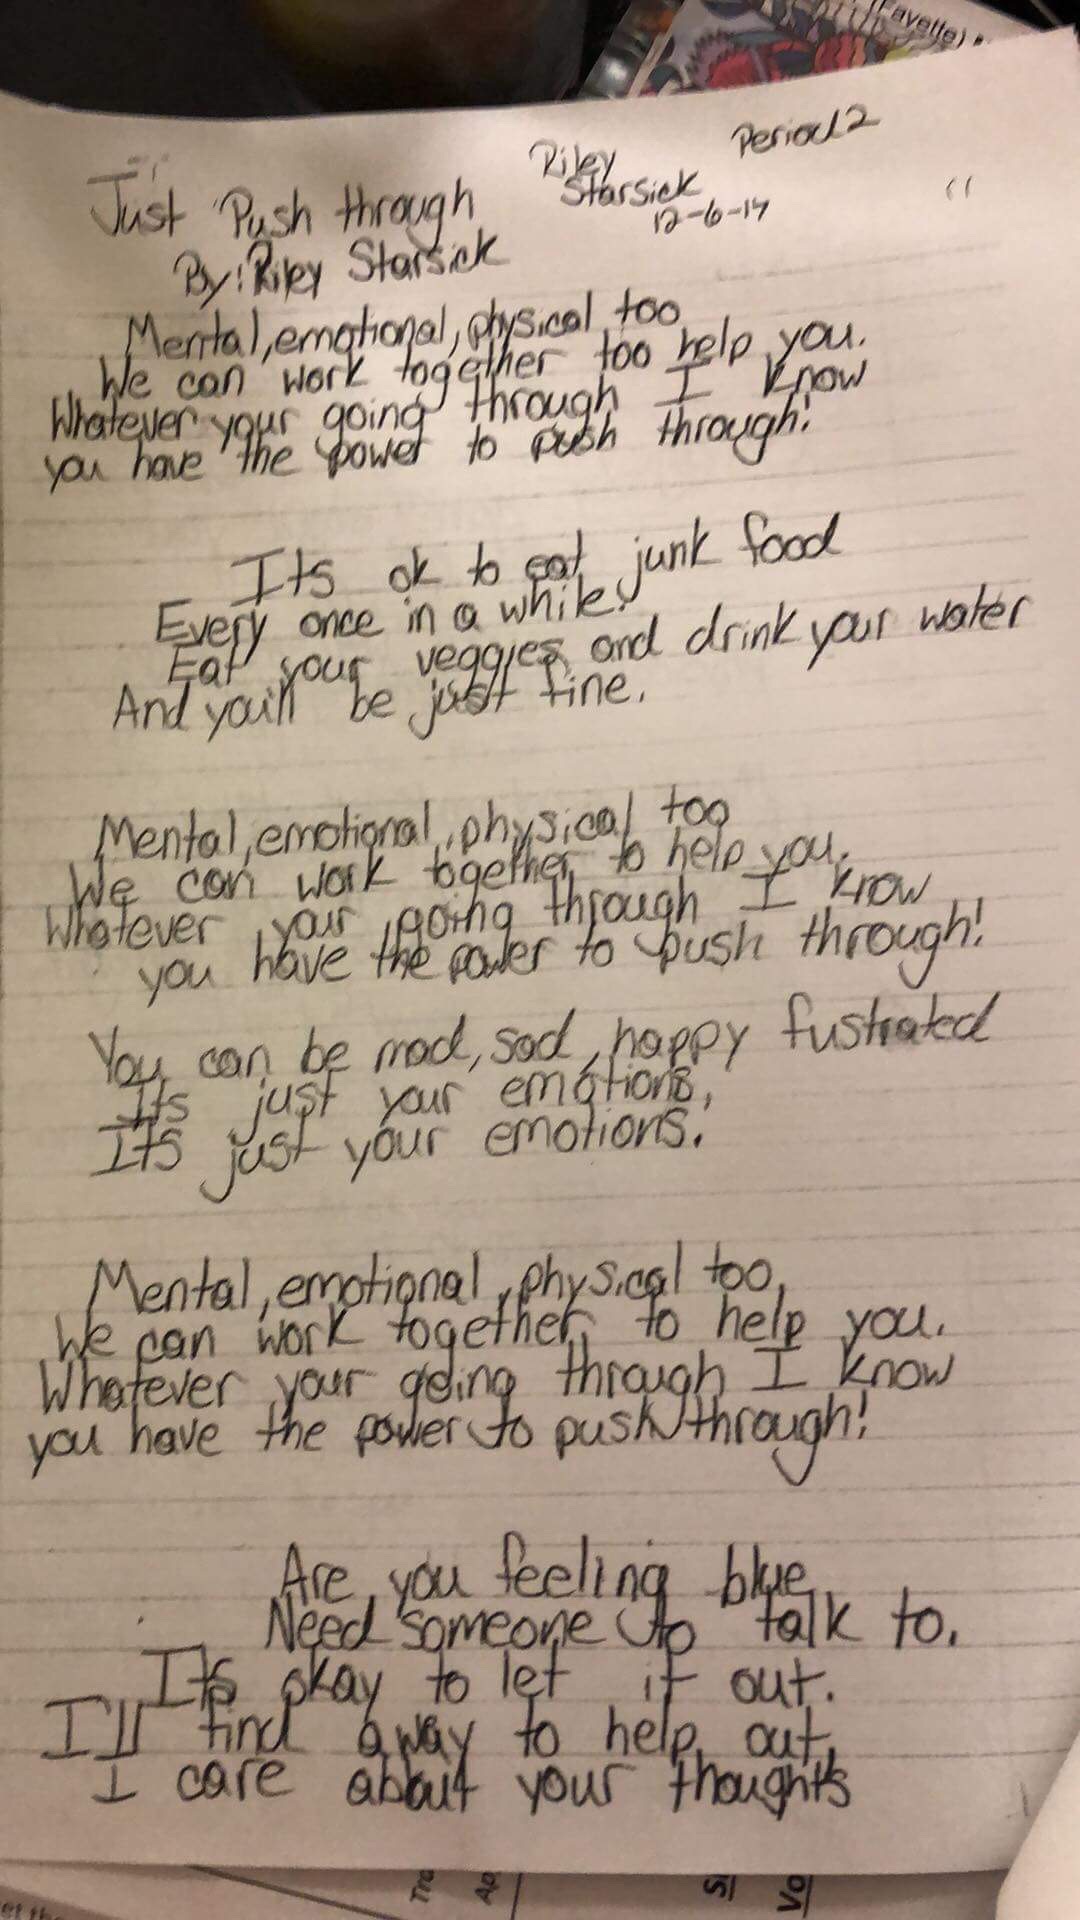 Favette)
Period 2
Riley
Starsick
12-6-17
Just Push through
By: Riley Starsick
Mental, emotional, physical too
We can work together too help you.
Whatever your going through I know
you have the power to push through!
Its ok to eat junk food
Every once in a while.
Eat your veggies and drink your water
And you'll be just fine.
Mental, emotional, physical too
We can work together to help you.
Whatever your going through I know
you have the power to push through!
You can be mad, sad, happy fustrated
Its just your emotions,
Its just your emotions.
Mental, emotional, physical too,
We can work together to help you.
Whatever your going through I know
you have the power to push through!
Are you feeling blue
Need someone to talk to.
Its okay to let it out.
I'll find a way to help out,
I care about your thoughts